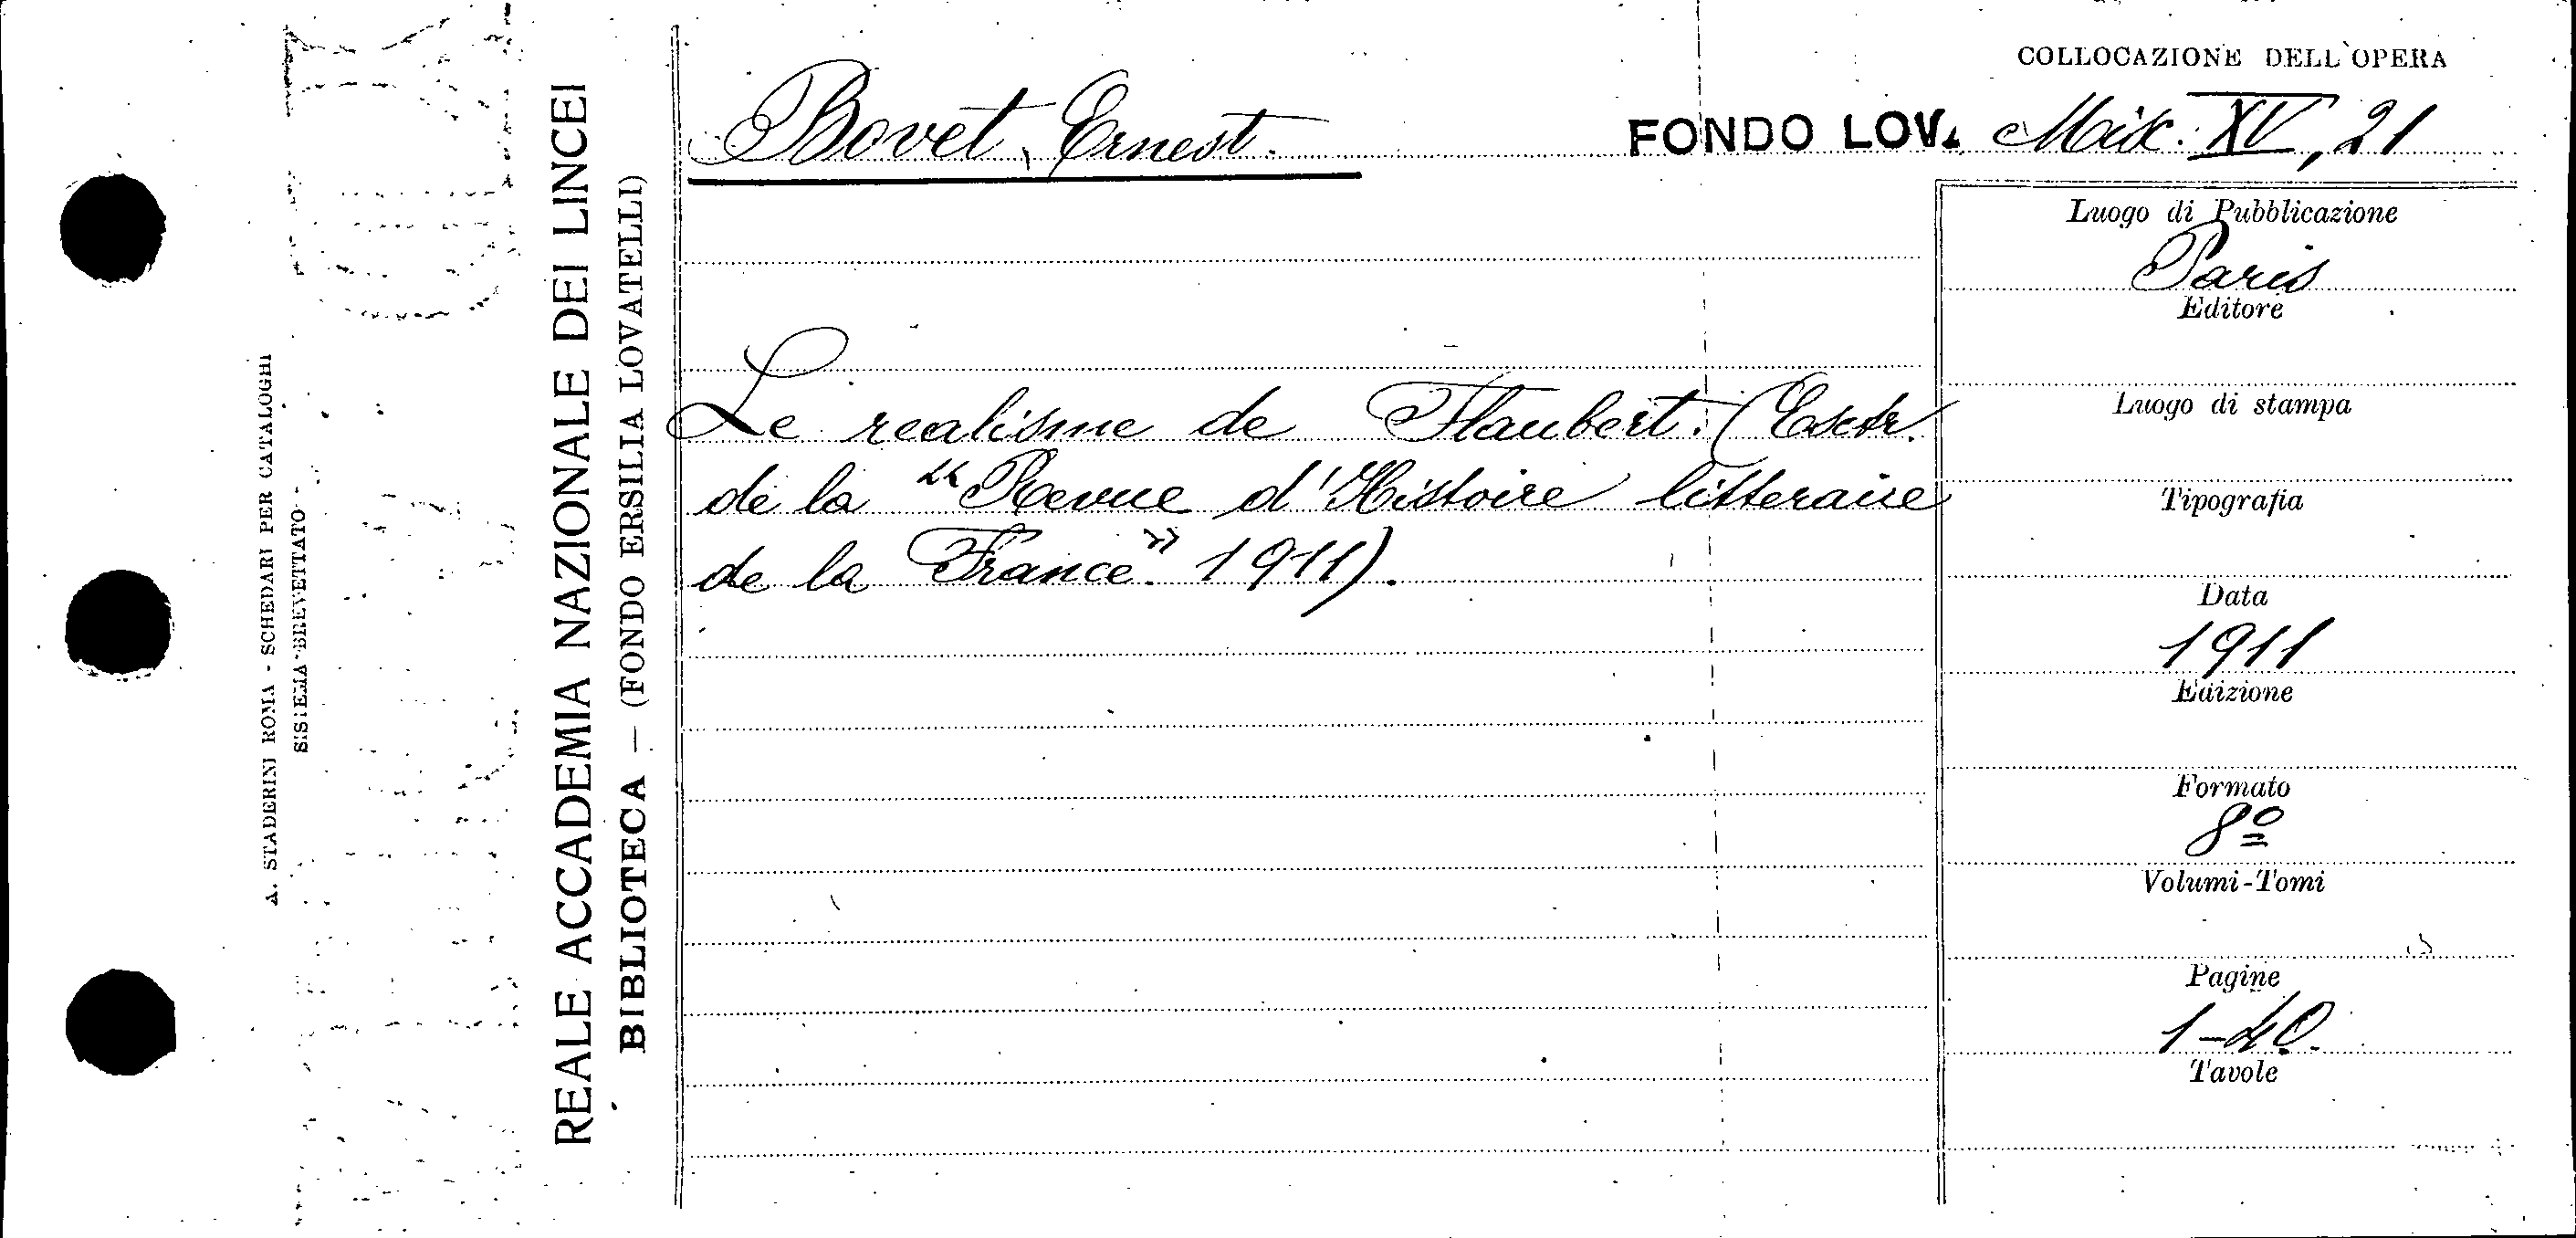 COLLOCAZIONE DELL'OPERA
Bovet, Ernest.
FONDO LOV. Misc. XV, 21
Le realisme de Flaubert. (Esctr.
de la "Revue d'Histoire litteraire
de la France" 1911).
Luogo di Pubblicazione
Paris
Editore
Luogo di stampa
Tipografia
Data
1911
Edizione
Formato
8º
Volumi-Tomi
Pagine
1-40.
Tavole
REALE ACCADEMIA NAZIONALE DEI LINCEI
BIBLIOTECA — (FONDO ERSILIA LOVATELLI)
A. STADERINI ROMA - SCHEDARI PER CATALOGHI
SISTEMA BREVETTATO